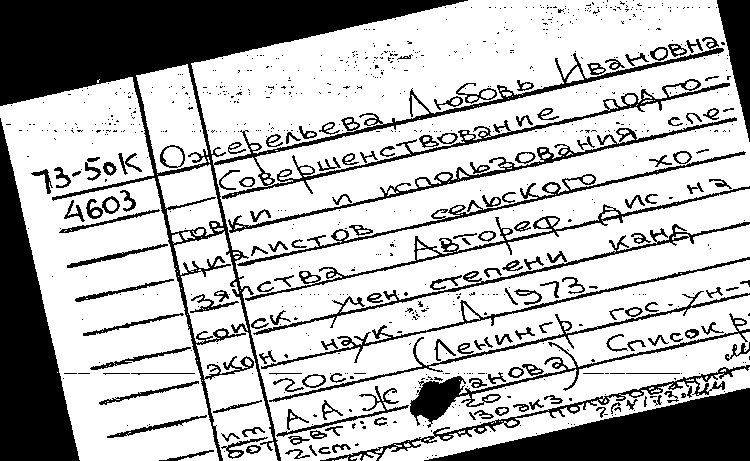 Ожерельева, Любовь Ивановна.
73-50К
4603
Совершенствование подго-
товки и использования спе-
циалистов сельского хо-
зяйства. Автореф. дис. на
соиск. учен. степени канд.
экон. наук. Л., 1973.
20 с. (Ленингр. гос. ун-т
А.А. Ж анова). Список р
авт.: с. 20.
130 экз.
21 cm.
пользования